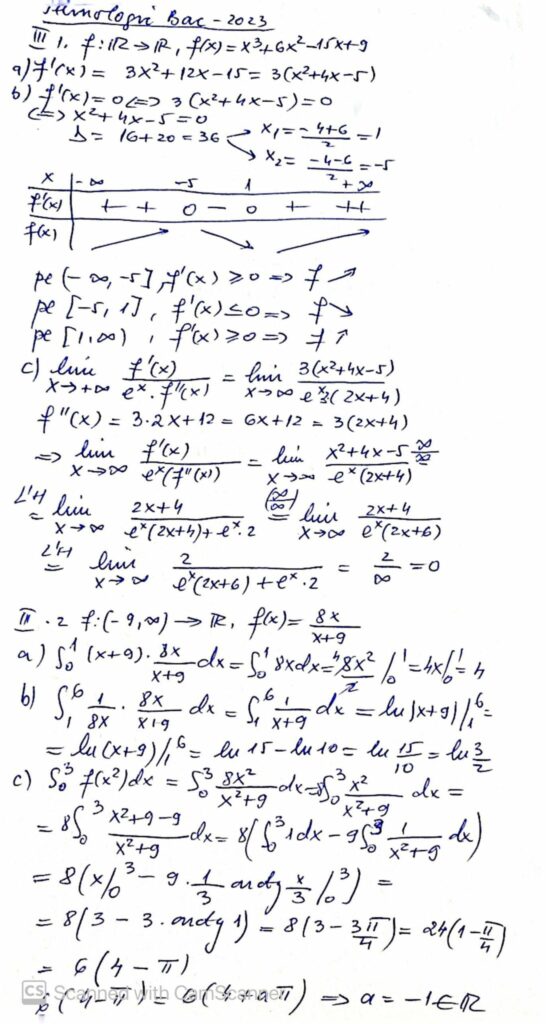 Tehnologic Bac - 2023
III 1. f: ℝ → ℝ, f(x) = x³+6x²-15x+9
a) f'(x) = 3x²+12x-15 = 3(x²+4x-5)
b) f'(x)=0 <=> 3(x²+4x-5)=0
<=> x²+4x-5=0
Δ = 16+20 = 36 → x₁ = (-4+6)/2 = 1
→ x₂ = (-4-6)/2 = -5
x | -∞ -5 1 +∞
f'(x) | + + 0 - 0 + ++
f(x) | ↗ ↘ ↗
pe (-∞, -5], f'(x) ≥ 0 => f ↗
pe [-5, 1], f'(x) ≤ 0 => f ↘
pe [1, ∞), f'(x) ≥ 0 => f ↗
c) lim x→+∞ f'(x)/(eˣ·f''(x)) = lim x→∞ 3(x²+4x-5)/(eˣ3(2x+4))
f''(x) = 3·2x+12 = 6x+12 = 3(2x+4)
=> lim x→∞ f'(x)/(eˣ(f''(x))) = lim x→∞ (x²+4x-5)/(eˣ(2x+4)) ∞/∞ =
L'H = lim x→∞ (2x+4)/(eˣ(2x+4)+eˣ·2) (∞/∞) = lim x→∞ (2x+4)/(eˣ(2x+6))
L'H = lim x→∞ 2/(eˣ(2x+6)+eˣ·2) = 2/∞ = 0
III. 2 f:(-9,∞) → ℝ, f(x) = 8x/(x+9)
a) ∫₀¹ (x+9)·8x/(x+9) dx = ∫₀¹ 8x dx = 8x²/2 |₀¹ = 4x|₀¹ = 4
b) ∫₁⁶ 1/8x · 8x/(x+9) dx = ∫₁⁶ 1/(x+9) dx = ln|x+9| |₁⁶ =
= ln(x+9)|₁⁶ = ln 15 - ln 10 = ln 15/10 = ln 3/2
c) ∫₀³ f(x²)dx = ∫₀³ 8x²/(x²+9) dx = 8∫₀³ x²/(x²+9) dx =
= 8∫₀³ (x²+9-9)/(x²+9) dx = 8(∫₀³ 1dx - 9∫₀³ 1/(x²+9) dx)
= 8(x|₀³ - 9·1/3 arctg x/3 |₀³) =
= 8(3 - 3·arctg 1) = 8(3 - 3π/4) = 24(1 - π/4)
= 6(4 - π)
6(4-π) = 6(4+aπ) => a = -1 ∈ ℝ
CS Scanned with CamScanner